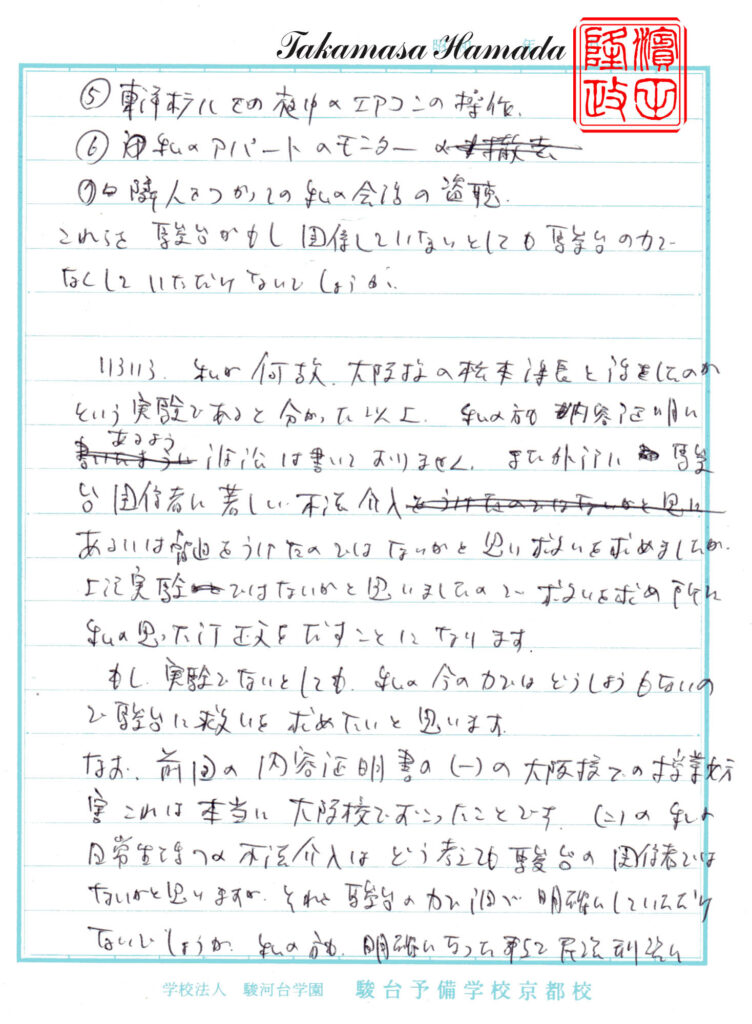 Takamasa Hamada
濵田隆政
⑤ 東洋ホテルでの夜中のエアコンの操作.
⑥ 私のアパートのモニターの撤去
⑦ 隣人をつかっての私の会話の盗聴.
これらを 駿台がもし 関係していないとしても 駿台の力で
なくして いただけ ないでしょうか.
私が 何故、大阪校の松本 課長と 話をしたのか
という 実験であると 分かった以上、私の方も 内容証明に
あるよう
書いたように は書いて おりません. また 駿
台 関係者に 著しい 不法介入をうけたのではないかと思い
あるいは 脅迫をうけたのでは ないかと 思い 求めましたが
上記実験ではないかと思いましたので を求め
私の思った 訂正文を だすことに なります.
もし、実験でないとしても、私の 今の力では どうしようもないの
で 駿台に 救いを 求めたいと 思います.
なお、前回の 内容証明書の (一)の 大阪校での 授業妨
害 これは 本当に 大阪校でおこったことです. (二)の 私の
日常生活の 不法介入は どう考えても 駿台の 関係者では
ないかと思いますが、それを 駿台の力で 明確にしていただけ
ないでしょうか. 私の方も、明確になった 時点で 民法 刑法に
学校法人 駿河台学園 駿台予備学校京都校